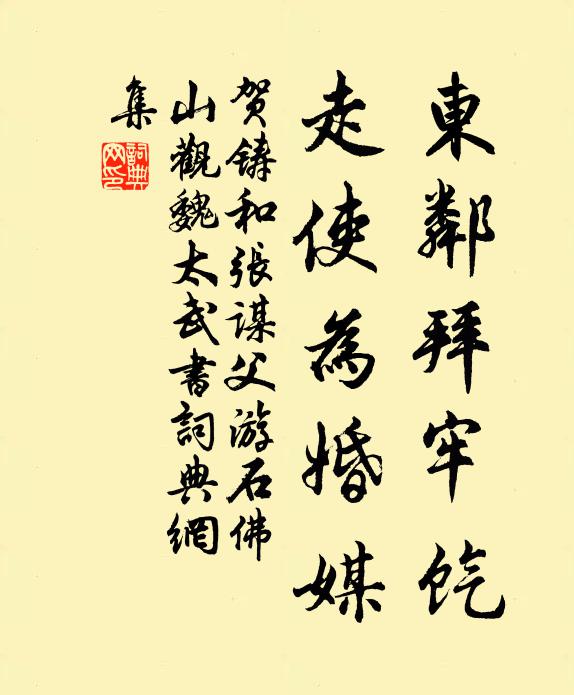 東鄰拜牢餼
走使為婚媒
賀鑄和張謀父游石佛
山觀魏太武書詞典網
集
詞典網印